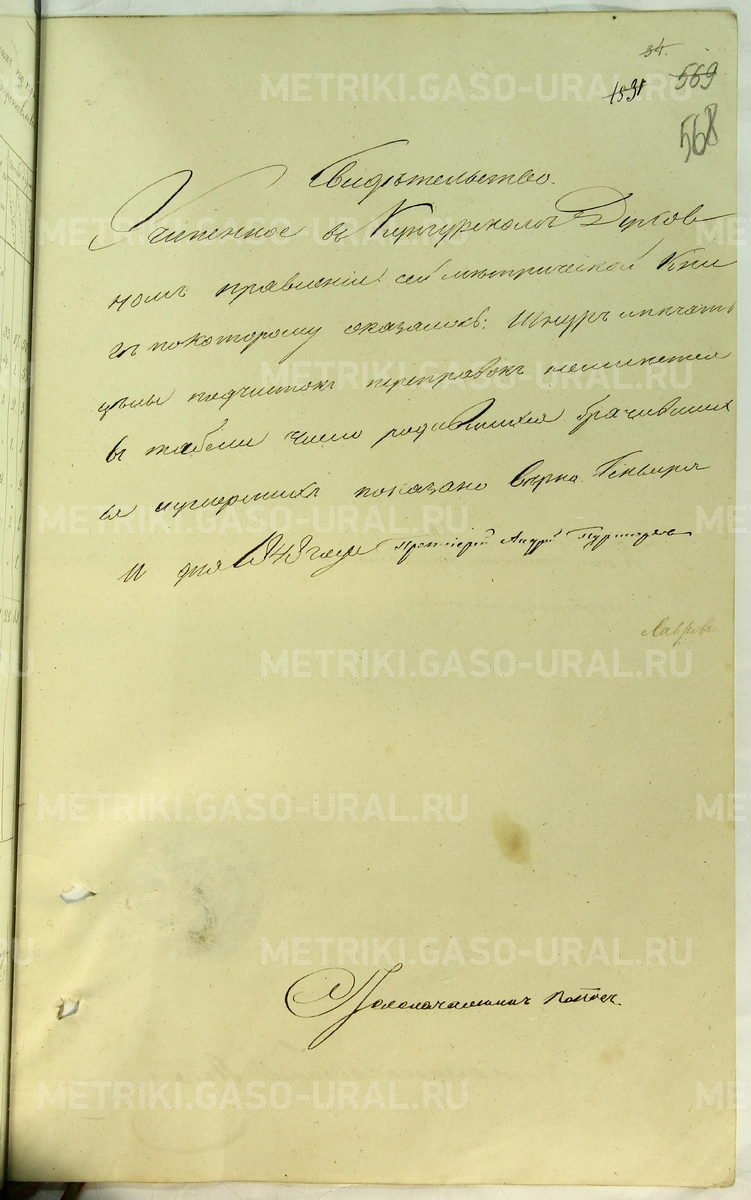 34.
1531 569
568
Свидѣтельство.
Учиненное въ Кунгурскомъ Духов
номъ правленіи сей метрической Кни
гѣ по которому оказалось: Шнуръ и печать
цѣлы подчистокъ переправокъ не имѣется
въ табели число родившихся брачивших
ся и умершихъ показано вѣрно. Генваря
11 дня 1848 года Протоіерей Андрей
Столоначальникъ Поповъ.
METRIKI.GASO-URAL.RU